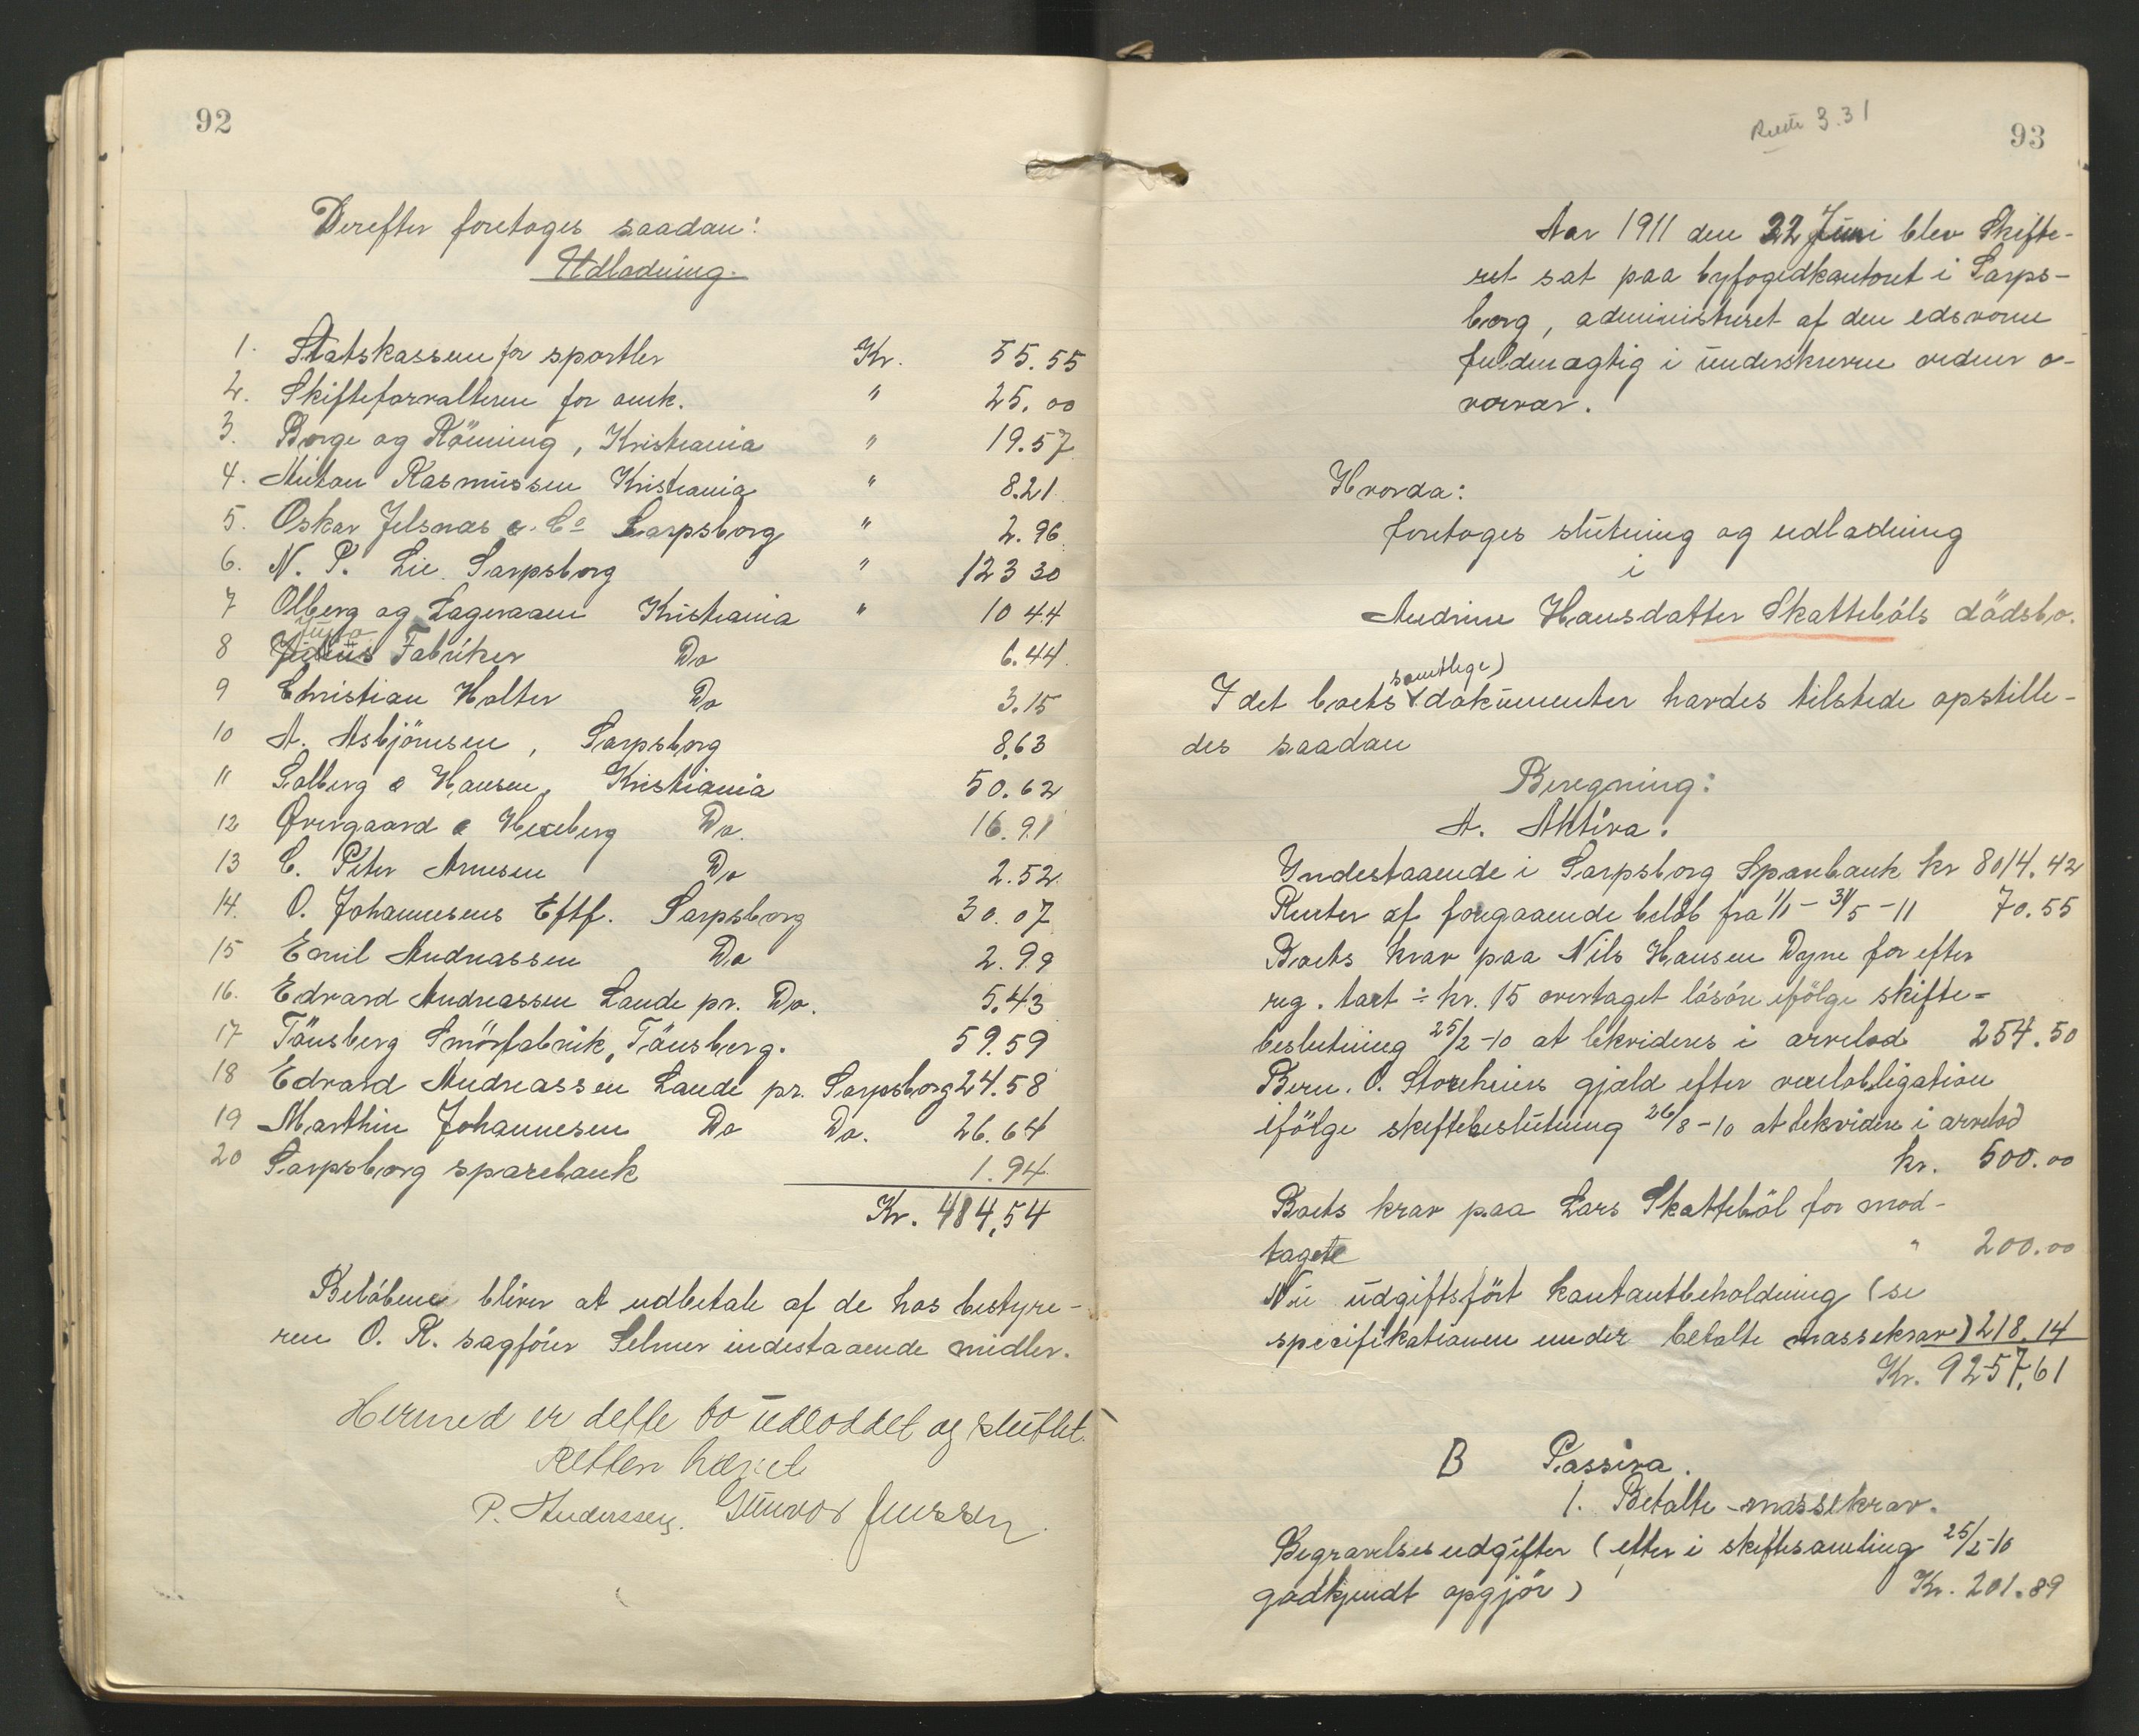 92
Derefter foretages saadan:
Udlodning.
1. Statskassen for sportler Kr. 55.55
2. Skifteforvalteren for omk. " 25.00
3. Borge og Rönning, Kristiania " 19.57
4. Anton Rasmussen Kristiania " 8.21
5. Oskar Jelsnas & Co Sarpsborg " 2.96
6. N. P. Lie Sarpsborg " 123 30
7 Olberg og Lageraaen Kristiania " 10 44
8 Fabriker Do 6.44
9 Christian Holter Do 3.15
10 A. Asbjörnsen, Sarpsborg 8,63
11 Solberg & Hansen, Kristiania 50.62
12 Øvergaard & Hexeberg Do. 16.91
13 C. Peter Arnesen Do 2.52
14. O. Johannesens Eftf. Sarpsborg 30.07
15 Emil Andreassen Do 2.99
16. Edvard Andreassen Lande pr. Do. 5.43
17 Tönsberg Smörfabrik, Tönsberg. 59.59
18 Edvard Andreassen Lande pr. Sarpsborg 24.58
19 Marthin Johannesen Do Do. 26.64
20 Sarpsborg sparebank 1.94
Kr. 484,54
Belöbene bliver at udbetale af de hos bestyre-
ren O. R. sagförer Selmer indestaaende midler.
Hermed er dette bo udloddet og sluttet.
Retten hævet
P. Anderssen. Gunvor Jenssen
3.31
93
Aar 1911 den 22 Juni blev Skifte-
ret sat paa byfogedkontoret i Sarps-
borg, administreret af den edsvorne
fuldmægtig i underskrevne vidners o-
vervær.
Hvorda:
foretoges slutning og udlodning
i
Andrine Hansdatter Skattebøls dödsbo.
samtlige)
I det boets √ dokumenter havdes tilstede opstille-
des saadan
Beregning:
A. Aktiva:
Indestaaende i Sarpsborg Sparebank kr 8014.42
Renter af foregaaende belöb fra 1/1 - 31/5 - 11 70.55
Boets krav paa Nils Hansen Dyne for efter
reg. taxt ÷ kr. 15 overtaget lösöre ifölge skifte=
beslutning 25/2 -10 at likvideres i arvelod 254.50
Bern. O. Storeheiers gjæld efter vexelobligation
ifölge skiftebeslutning 26/8 -10 at likvidere i arvelod
kr. 500.00
Boets krav paa Lars Skatteböl for mod-
tagete " 200.00
Nu udgiftsfört kontantbeholdning (se
specifikationen under betalte massekrav) 218.14
Kr. 9257,61
B Passiva.
1. Betalte massekrav.
Begravelsesudgifter (efter i skiftesamling 25/2-10
godkjendt opgjör) Kr. 201.89